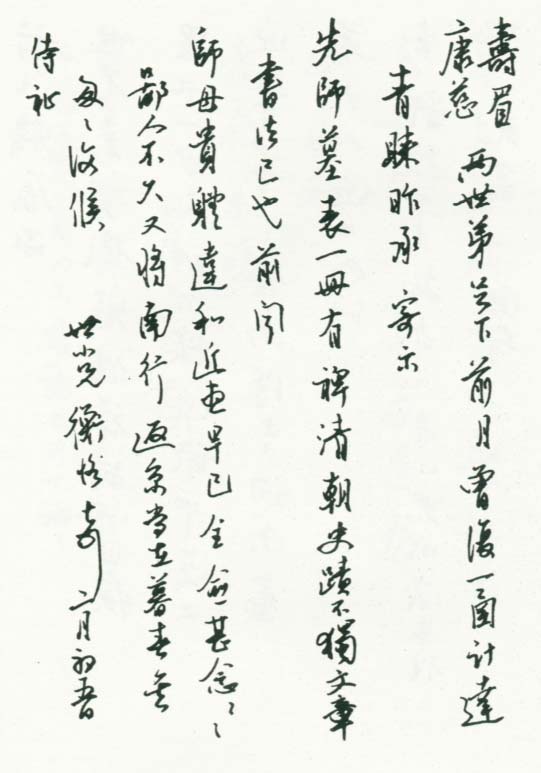 壽眉
康慈 兩世弟足下前月曾復一函計達
青睞昨承 寄示
先師墓表一冊有裨清朝史蹟不獨文章
書法已也前聞
師母貴體違和近想早已全愈甚念甚念
鄙人不久又將南行返京當在暮春矣
匆匆敬候
侍祉
世小兄衡恪 二月初五日